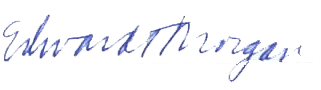 Edward T Morgan